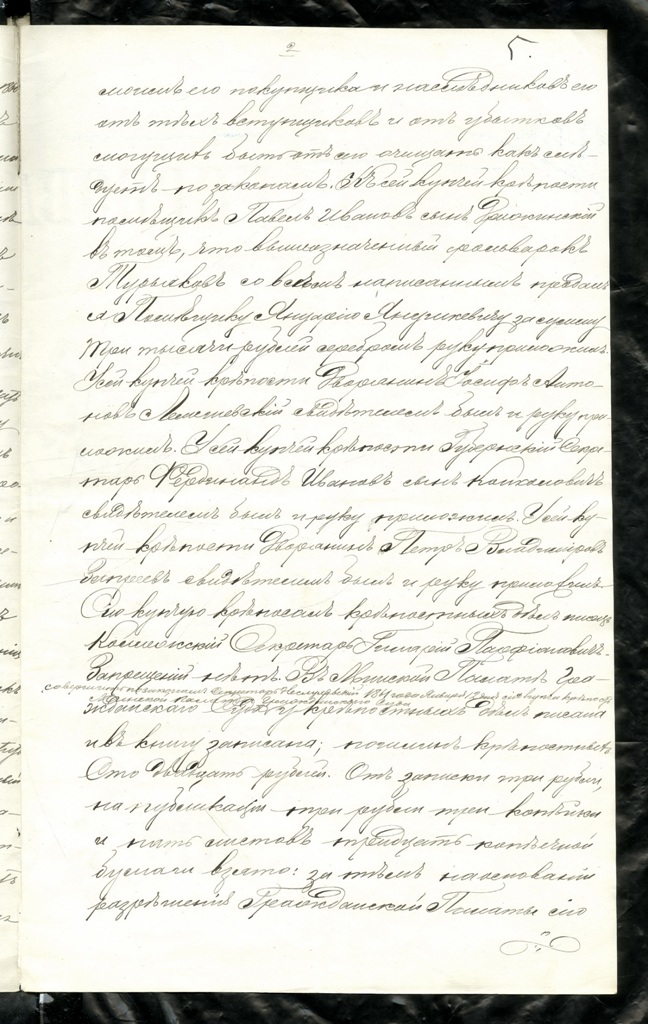 2
5.
моимъ его покупщика и наслѣдниковъ его
отъ тѣхъ вступщиковъ и отъ убытковъ
могущихъ быть отъ сего очищать какъ слѣ-
дуетъ по законамъ. Къ сей купчей крѣпости
помѣщикъ Павелъ Ивановъ сынъ
въ томъ, что вышеозначенный фольварокъ
со всѣмъ написаннымъ продалъ
я Помѣщику Януарію Янушкевичу за сумму
три тысячи рублей серебромъ руку приложилъ.
У сей купчей крѣпости Дворянинъ Іосифъ Анто-
новъ свидѣтелемъ былъ и руку при-
ложилъ. У сей купчей крѣпости Губернскій Секре-
тарь Фердинандъ Ивановъ сынъ
свидѣтелемъ былъ и руку приложилъ. У сей ку-
пчей крѣпости Дворянинъ Петръ Владиміровъ
свидѣтелемъ былъ и руку приложилъ
Сію купчую крѣпость писалъ крѣпостныхъ дѣлъ писецъ
Коллежскій Секретарь Гиларій
Запрещеній нѣтъ. Въ Минской Палатѣ Гра-
совершилъ по законамъ Секретарь 184 года Января дня сія купчая крѣпость
Минской палаты Гражданскаго Суда
жданскаго Суда у крѣпостныхъ дѣлъ писана
и въ книгу записана; пошлинъ крѣпостныхъ
Сто двадцать рублей. Отъ записки три рубли,
на публикацію три рубли три копѣйки
и пять листовъ тридцать копѣечной
бумаги взято: за тѣмъ на основаніи
разрѣшенія Гражданской Палаты сію